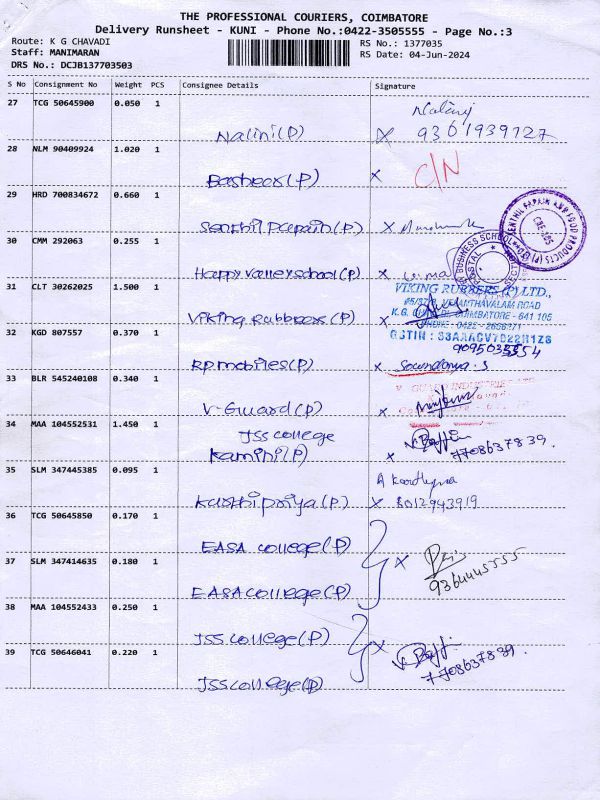 THE PROFESSIONAL COURIERS, COIMBATORE
Delivery Runsheet - KUNI - Phone No.:0422-3505555 - Page No.:3
Route: K G CHAVADI
Staff: MANIMARAN
DRS No.: DCJB137703503
RS No.: 1377035
RS Date: 04-Jun-2024
S No Consignment No Weight PCS Consignee Details Signature
27 TCG 50645900 0.050 1
Nalini(P) 9361939727
28 NLM 90409924 1.020 1
C/N
29 HRD 700834672 0.660 1
Senthil Papain(P)
30 CMM 292063 0.255 1
Happy valley school(P)
31 CLT 30262025 1.500 1
VIKING RUBBERS (P) LTD.,
VELANTHAVALAM ROAD
COIMBATORE - 641 105
Viking Rubbers(P)
32 KGD 807557 0.370 1
RP mobiles(P) Soundarya.S
33 BLR 545240108 0.340 1
V GUARD INDUSTRIES LTD
V-Guard(P)
34 MAA 104552531 1.450 1
JSS college
Kamini(P) 7708637839.
35 SLM 347445385 0.095 1
Karthipriya(P) 8012943919
36 TCG 50645850 0.170 1
EASA college(P)
37 SLM 347414635 0.180 1
9364445555
EASA college(P)
38 MAA 104552433 0.250 1
JSS college(P)
39 TCG 50646041 0.220 1
7708637839.
JSS college(P)